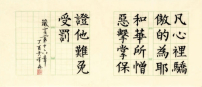 凡心裡驕
傲的為耶
和華所憎
惡擊掌保
證他難免
受罰
箴言第十六章